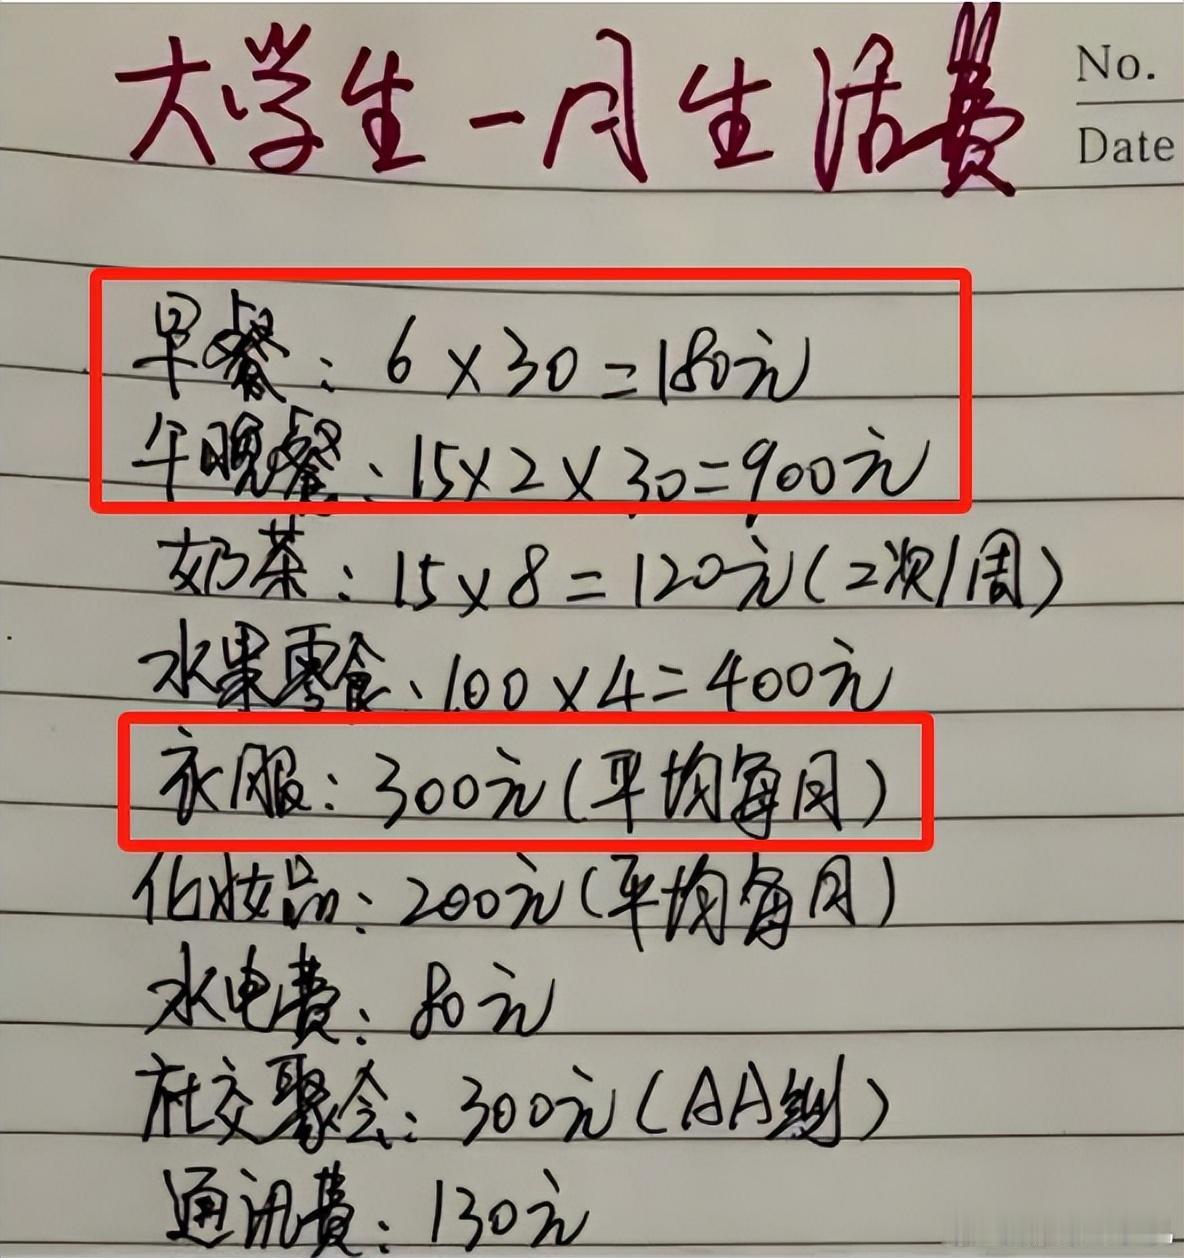 大学生一月生活费
No.
Date
早餐：6×30=180元
午晚餐：15×2×30=900元
奶茶：15×8=120元(2次/周)
水果零食：100×4=400元
衣服：300元(平均每月)
化妆品：200元(平均每月)
水电费：80元
社交聚会：300元(AA制)
通讯费：130元